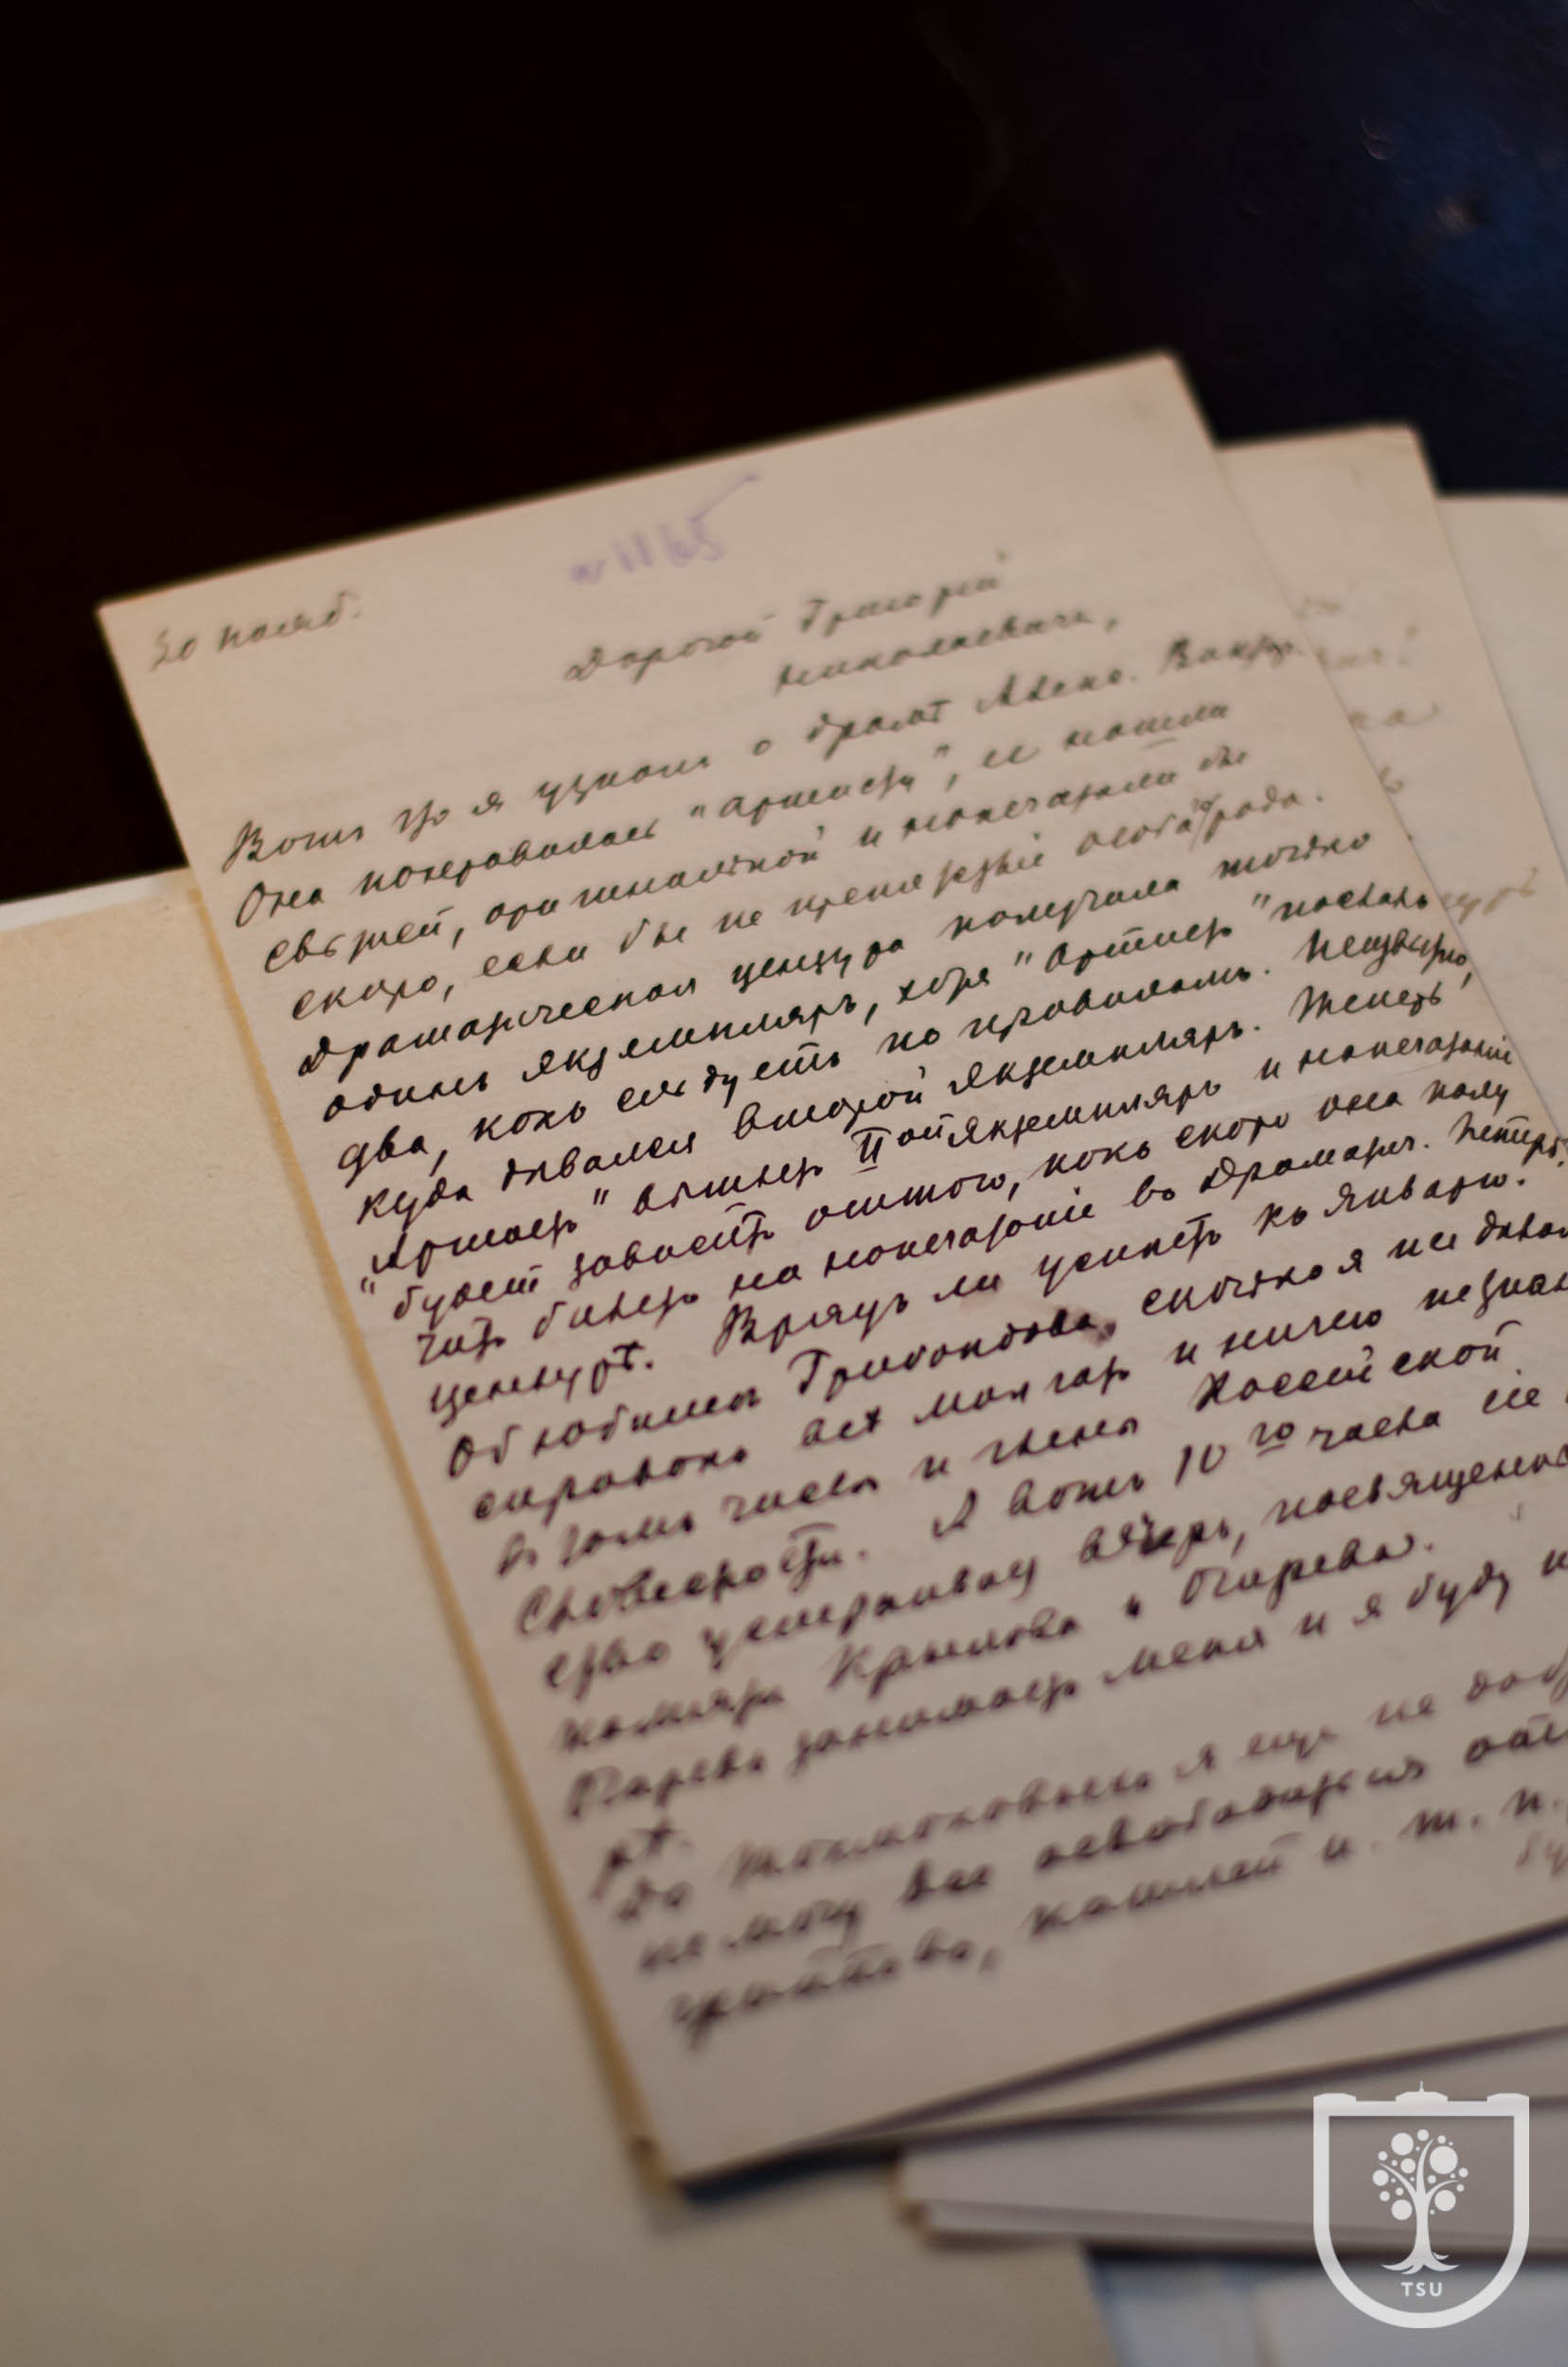 30 нояб.
№ 1165
Дорогой Григорій
Николаевичъ,
Вотъ что я узналъ о драмѣ Алекс.
Она понравилась "Артисту", ее нашли
свѣжей, оригинальной и напечатали бы
скоро, если бы не препятствіе особаго рода.
Драматическая цензура получила только
одинъ экземпляръ, хотя "Артистъ" послалъ
два, какъ слѣдуетъ по правиламъ. Неизвѣстно,
куда дѣвался второй экземпляръ. Теперь
"Артистъ" вышлетъ IIой экземпляръ и напечатаніе
будетъ зависѣть от того, какъ скоро она полу
читъ билетъ на напечатаніе въ Драматич. Петерб.
цензурѣ. Врядъ ли успѣетъ къ Январю.
Об юбилеѣ Грибоѣдова, сколько я ни дѣлал
справокъ всѣ молчатъ и ничего не знаю
въ томъ числѣ и члены Россійской
Словесности. А вотъ 10го часа
ство устраиваетъ вечеръ, посвященный
памяти Крылова и Огарева.
Огаревъ занимаетъ меня и я буду
рѣ.
До я еще не доб
не могу все освободиться отъ
кашлей и т. п.
TSU